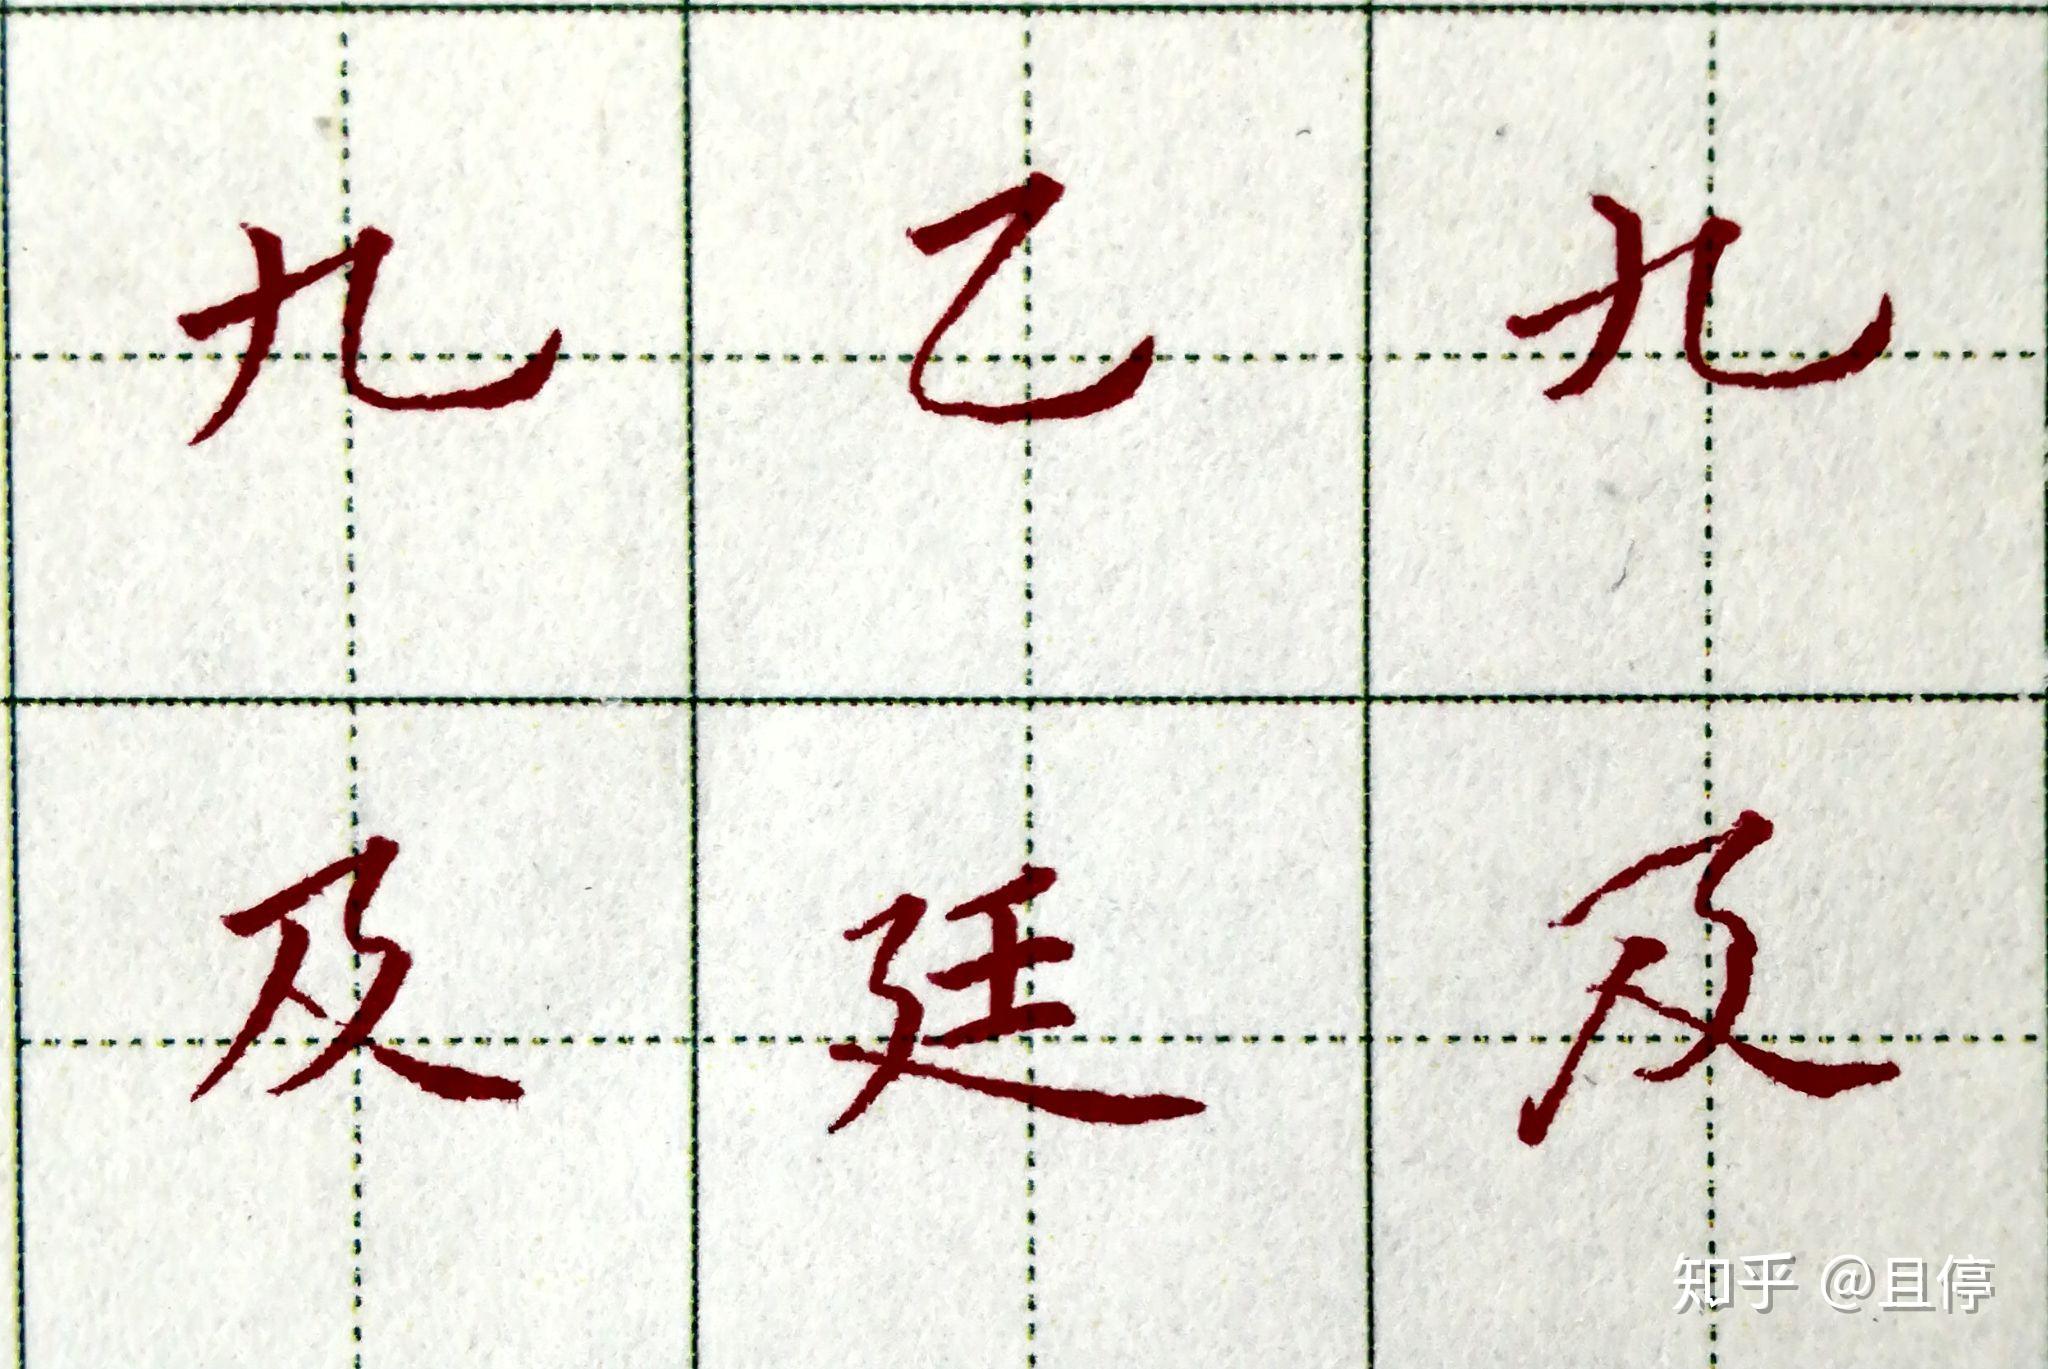 九 乙 九
及 廷 及
知乎 @且停